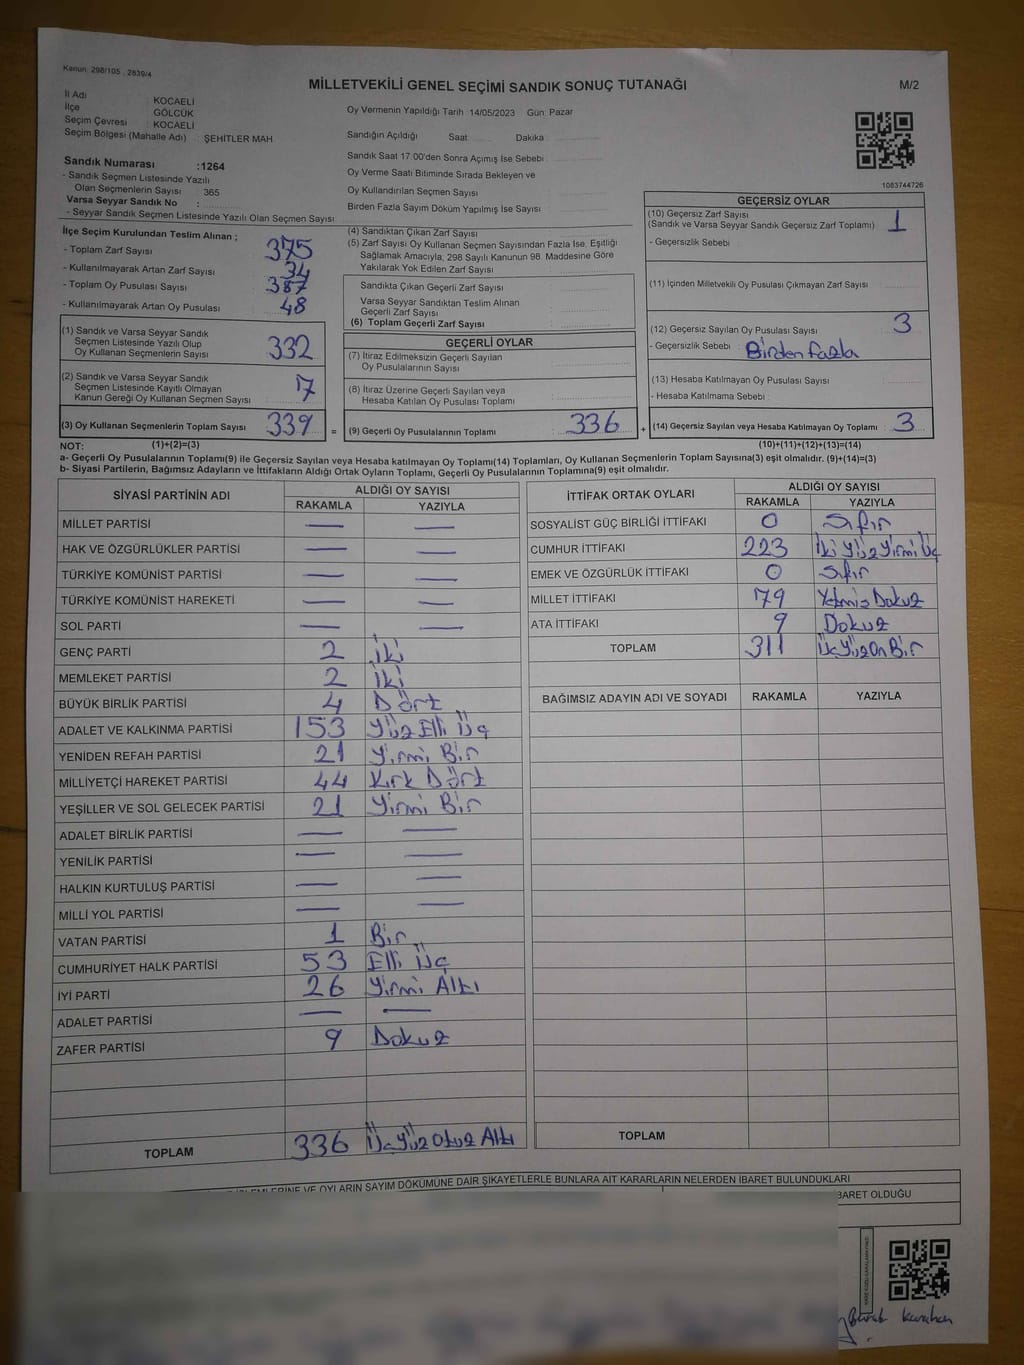 Kanun: 298/105 , 2839/4
MİLLETVEKİLİ GENEL SEÇİMİ SANDIK SONUÇ TUTANAĞI
M/2
İl Adı KOCAELİ
İlçe GÖLCÜK
Seçim Çevresi : KOCAELİ
Seçim Bölgesi (Mahalle Adı) : ŞEHİTLER MAH
Oy Vermenin Yapıldığı Tarih 14/05/2023 Gün Pazar
Sandığın Açıldığı Saat Dakika
Sandık Saat 17:00'den Sonra Açımış İse Sebebi
Oy Verme Saati Bitiminde Sırada Bekleyen ve
Oy Kullandırılan Seçmen Sayısı
Birden Fazla Sayım Döküm Yapılmış İse Sayısı
1083744726
Sandık Numarası :1264
- Sandık Seçmen Listesinde Yazılı
Olan Seçmenlerin Sayısı 365
Varsa Seyyar Sandık No :
- Seyyar Sandık Seçmen Listesinde Yazılı Olan Seçmen Sayısı
İlçe Seçim Kurulundan Teslim Alınan ;
- Toplam Zarf Sayısı 375
- Kullanılmayarak Artan Zarf Sayısı 34
- Toplam Oy Pusulası Sayısı 387
- Kullanılmayarak Artan Oy Pusulası 48
(1) Sandık ve Varsa Seyyar Sandık
Seçmen Listesinde Yazılı Olup
Oy Kullanan Seçmenlerin Sayısı 332
(2) Sandık ve Varsa Seyyar Sandık
Seçmen Listesinde Kayıtlı Olmayan
Kanun Gereği Oy Kullanan Seçmen Sayısı 7
(3) Oy Kullanan Seçmenlerin Toplam Sayısı 339 =
(4) Sandıktan Çıkan Zarf Sayısı
(5) Zarf Sayısı Oy Kullanan Seçmen Sayısından Fazla İse, Eşitliği
Sağlamak Amacıyla; 298 Sayılı Kanunun 98. Maddesine Göre
Yakılarak Yok Edilen Zarf Sayısı
Sandıkta Çıkan Geçerli Zarf Sayısı
Varsa Seyyar Sandıktan Teslim Alınan
Geçerli Zarf Sayısı
(6) Toplam Geçerli Zarf Sayısı
GEÇERLİ OYLAR
(7) İtiraz Edilmeksizin Geçerli Sayılan
Oy Pusulalarının Sayısı
(8) İtiraz Üzerine Geçerli Sayılan veya
Hesaba Katılan Oy Pusulası Toplamı
(9) Geçerli Oy Pusulalarının Toplamı 336 +
GEÇERSİZ OYLAR
(10) Geçersiz Zarf Sayısı 1
(Sandık ve Varsa Seyyar Sandık Geçersiz Zarf Toplamı)
- Geçersizlik Sebebi
(11) İçinden Milletvekili Oy Pusulası Çıkmayan Zarf Sayısı
(12) Geçersiz Sayılan Oy Pusulası Sayısı 3
- Geçersizlik Sebebi : Birden Fazla
(13) Hesaba Katılmayan Oy Pusulası Sayısı
- Hesaba Katılmama Sebebi
(14) Geçersiz Sayılan veya Hesaba Katılmayan Oy Toplamı 3
NOT: (1)+(2)=(3) (10)+(11)+(12)+(13)=(14)
a- Geçerli Oy Pusulalarının Toplamı(9) ile Geçersiz Sayılan veya Hesaba katılmayan Oy Toplamı(14) Toplamları, Oy Kullanan Seçmenlerin Toplam Sayısına(3) eşit olmalıdır. (9)+(14)=(3)
b- Siyasi Partilerin, Bağımsız Adayların ve İttifakların Aldığı Ortak Oyların Toplamı, Geçerli Oy Pusulalarının Toplamına(9) eşit olmalıdır.
SİYASİ PARTİNİN ADI ALDIĞI OY SAYISI
RAKAMLA YAZIYLA
MİLLET PARTİSİ — —
HAK VE ÖZGÜRLÜKLER PARTİSİ — —
TÜRKİYE KOMÜNİST PARTİSİ — —
TÜRKİYE KOMÜNİST HAREKETİ — —
SOL PARTİ — —
GENÇ PARTİ 2 iki
MEMLEKET PARTİSİ 2 iki
BÜYÜK BİRLİK PARTİSİ 4 Dört
ADALET VE KALKINMA PARTİSİ 153 Yüz Elli Üç
YENİDEN REFAH PARTİSİ 21 Yirmi Bir
MİLLİYETÇİ HAREKET PARTİSİ 44 Kırk Dört
YEŞİLLER VE SOL GELECEK PARTİSİ 21 Yirmi Bir
ADALET BİRLİK PARTİSİ — —
YENİLİK PARTİSİ — —
HALKIN KURTULUŞ PARTİSİ — —
MİLLİ YOL PARTİSİ — —
VATAN PARTİSİ 1 Bir
CUMHURİYET HALK PARTİSİ 53 Elli Üç
İYİ PARTİ 26 Yirmi Altı
ADALET PARTİSİ — —
ZAFER PARTİSİ 9 Dokuz
TOPLAM 336 Üç Yüz Otuz Altı
İTTİFAK ORTAK OYLARI ALDIĞI OY SAYISI
RAKAMLA YAZIYLA
SOSYALİST GÜÇ BİRLİĞİ İTTİFAKI 0 Sıfır
CUMHUR İTTİFAKI 223 İki Yüz Yirmi Üç
EMEK VE ÖZGÜRLÜK İTTİFAKI 0 Sıfır
MİLLET İTTİFAKI 79 Yetmiş Dokuz
ATA İTTİFAKI 9 Dokuz
TOPLAM 311 Üç Yüz On Bir
BAĞIMSIZ ADAYIN ADI VE SOYADI RAKAMLA YAZIYLA
TOPLAM
OYLARIN SAYIM DÖKÜMÜNE DAİR ŞİKAYETLERLE BUNLARA AİT KARARLARIN NELERDEN İBARET BULUNDUKLARI
İBARET OLDUĞU